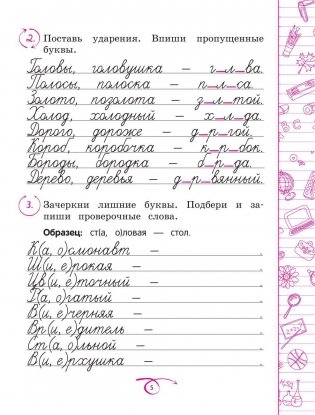 2. Поставь ударения. Впиши пропущенные
буквы.
Головы, головушка — г_л_ва.
Полосы, полоска — п_л_са.
Золото, позолота — з_л_той.
Холод, холодный — х_л_да.
Дорого, дороже — д_р_гой.
Короб, коробочка — к_р_бок.
Бороды, бородка — б_р_да.
Дерево, деревья — д_р_вянный.
3. Зачеркни лишние буквы. Подбери и за-
пиши проверочные слова.
Образец: ст(а, о)ловая — стол.
К(а, о)смонавт —
Ш(и, е)рокая —
Цв(и, е)точный —
П(а, о)гатый —
В(и, е)черняя —
Вр(и, е)дитель —
Ст(а, о)льной —
В(и, е)рхушка —
5